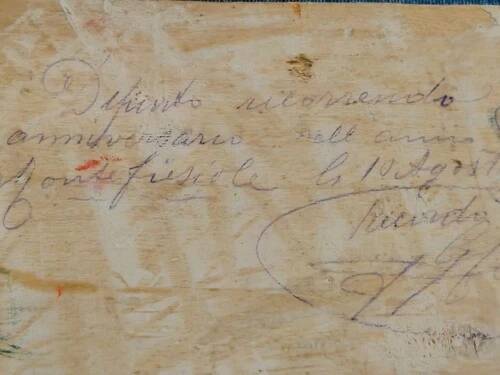 Dipinto ricorrendo
anniversario dell'anno
Montefiesole li 10 Agost
Ricordo